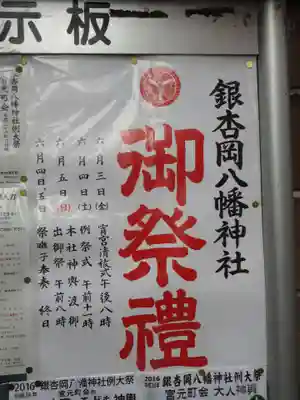 示板
銀杏岡八幡神社
御祭禮
六月三日(金) 宵宮清祓式 午後八時
六月四日(土) 例祭式 午前十一時
六月五日(日) 本社神輿渡御
出御祭 午前八時
六月四日五日 祭囃子奉奏 終日
2016 銀杏岡八幡神社例大祭
宮元町会
2016 銀杏岡八幡神社例大祭
宮元町会 大人神輿